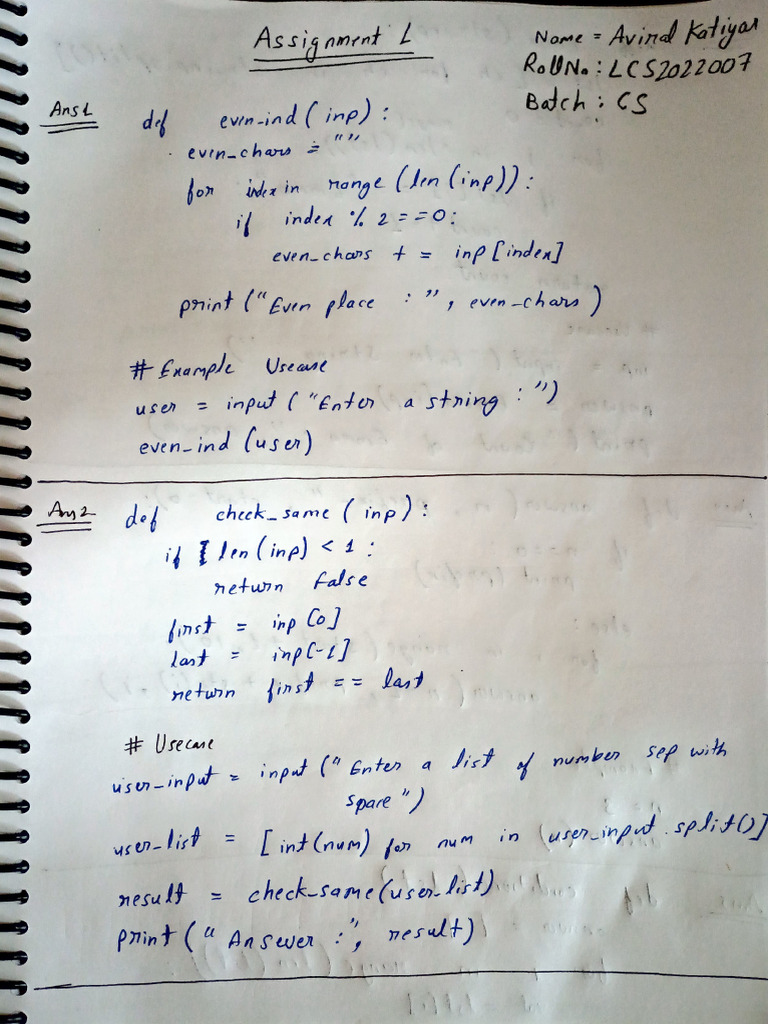 Assignment 1
Name = Aviral Katiyar
Roll No : LCS2022007
Batch : CS
Ans1
def even_ind ( inp) :
even_chars = ""
for index in range (len (inp)) :
if index % 2 == 0:
even_chars + = inp [index]
print ("Even place : ", even_chars )
# Example Usecase
user = input ("Enter a string : ")
even_ind (user)
Ans2
def check_same ( inp) :
if len (inp) < 1 :
return False
first = inp [0]
last = inp[-1]
return first == last
# Usecase
user_input = input (" Enter a list of number sep with
space ")
user_list = [ int (num) for num in (user_input . split()]
result = check_same (user_list)
print (" Answer : ", result)